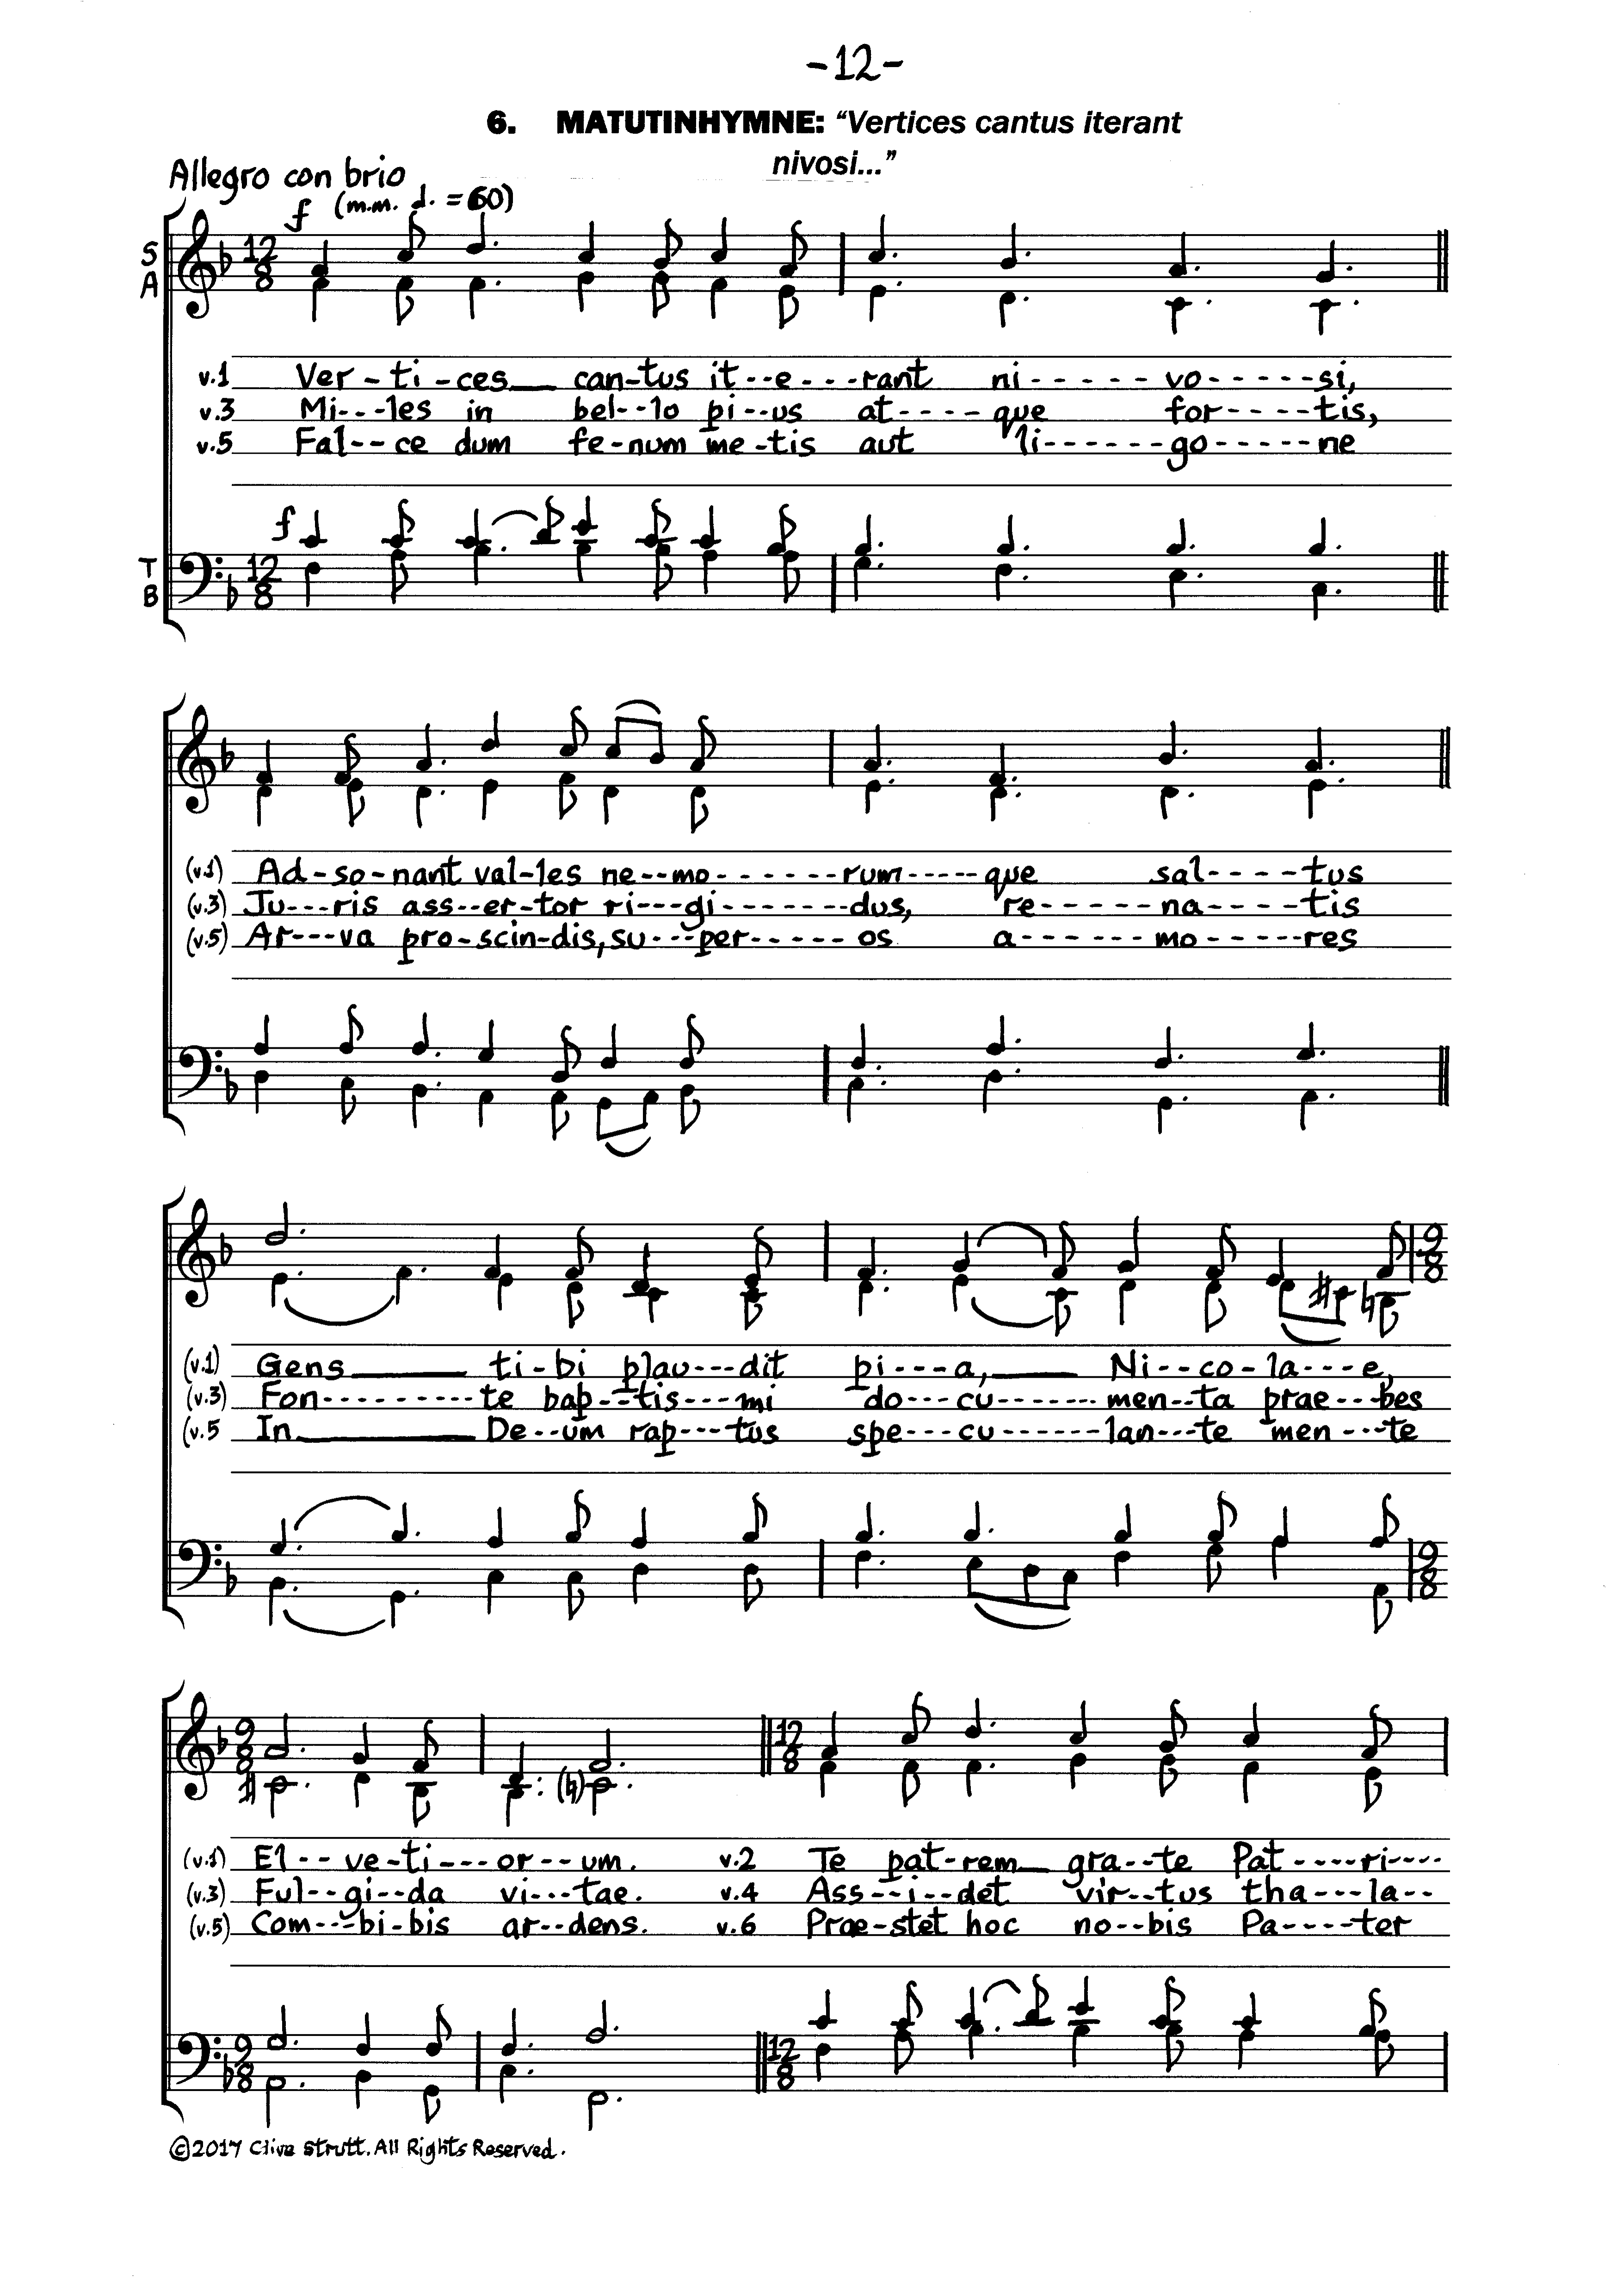 -12-
6. MATUTINHYMNE: "Vertices cantus iterant
nivosi..."
Allegro con brio
f (m.m. ♩. = 60)
S
A
12
8
v.1 Ver-ti-ces___ can-tus it--e---rant ni-----vo-----si,
v.3 Mi---les in bel--lo pi--us at----que for----tis,
v.5 Fal--ce dum fe-num me-tis aut li------go-----ne
f
T
B
12
8
(v.1) Ad-so-nant val-les ne--mo------rum-----que sal----tus
(v.3) Ju---ris ass--er-tor ri---gi-------dus, re-----na----tis
(v.5) Ar---va pro-scin-dis, su---per-----os a------mo-----res
9
8
(v.1) Gens______ ti-bi plau---dit pi---a,____ Ni--co-la---e,
(v.3) Fon---------te bap--tis---mi do---cu-------men--ta prae---bes
(v.5 In______ De--um rap---tus spe---cu------lan---te men---te
9
8
9
8
12
8
(v.1) El--ve-ti---or--um. v.2 Te pat-rem__ gra--te Pat----ri----
(v.3) Ful--gi--da vi---tae. v.4 Ass--i--det vir--tus tha---la--
(v.5) Com---bi-bis ar--dens. v.6 Prae-stet hoc no--bis Pa----ter
9
8
12
8
©2017 Clive Strutt. All Rights Reserved.